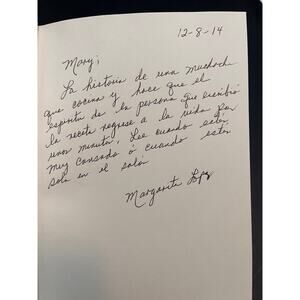 12-8-14
Mary;
La historia de una muchach
que cocina y hace que el
espiritu de la persona que escribió
la receta regrese a la vida por
unos minutos. Lee cuando estés
muy cansada ó cuando estes
sola en el salón
Margarita López